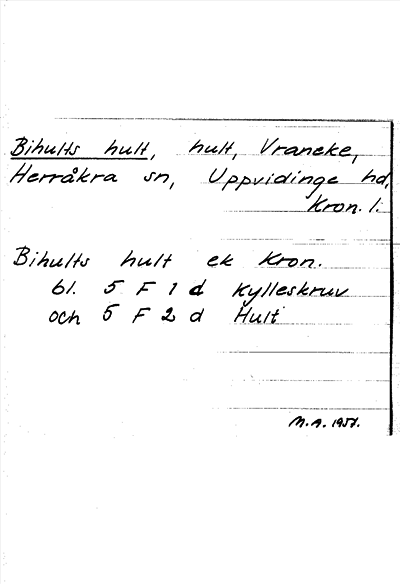 Bihults hult, hult, Vraneke,
Herråkra sn, Uppvidinge hd,
Kron. l.
Bihults hult ek Kron.
bl. 5 F 1 d Kylleskruv
och 5 F 2 d Hult
M.A.